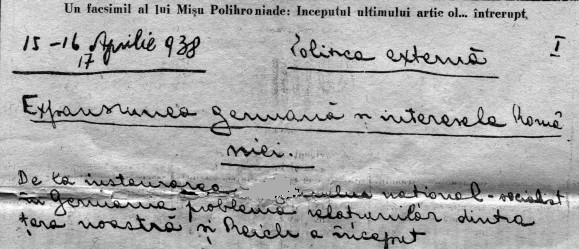 Un facsimil al lui Mișu Polihroniade: Inceputul ultimului artic ol... intrerupt.
15-16 Aprilie 938
17
Politica externă
I
Expansiunea germană și interesele Româ
niei.
De la instaurarea național-socialist
în Germania problema relațiunilor dintre
țara noastră și Reich a început